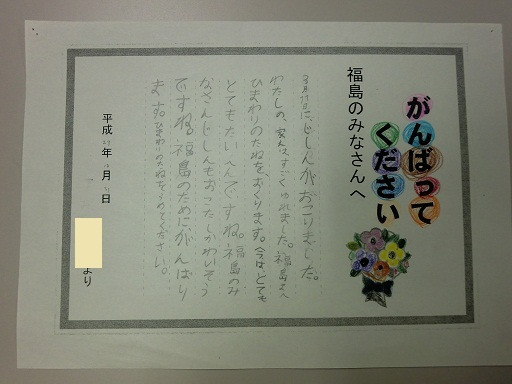 がんばって
ください
福島のみなさんへ
3月11日に、じしんがおこりました。
わたしの、家は、すごくゆれました。福島へ
ひまわりのたねを、おくります。今はとても
とてもたいへんですね。福島のみ
なさんじしんもおこったしかわいそう
ですね。福島のためにがんばり
ます。ひまわりのたねをうめてください。
平成23年 月 日
より